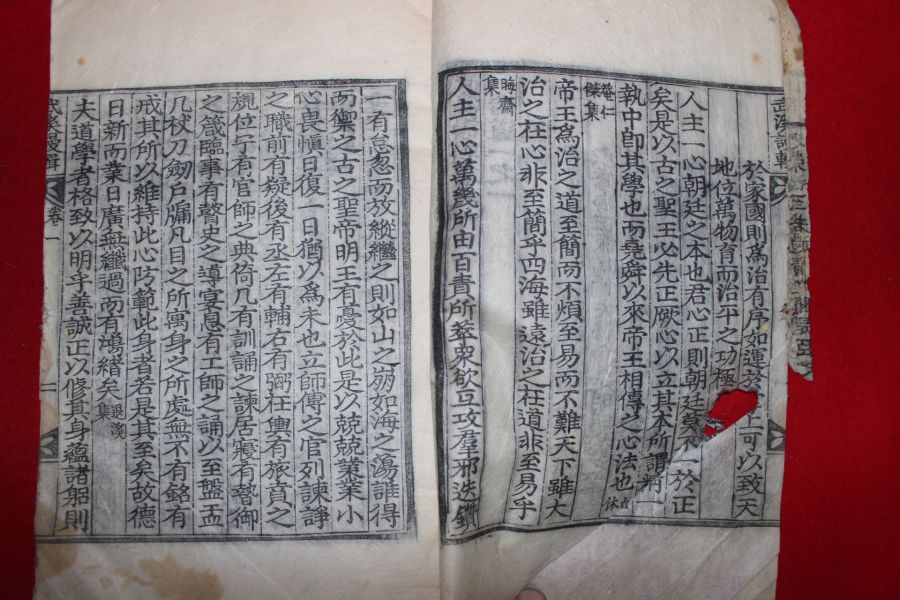 於家國則為治有序如運於上可以致天
地位萬物育而治平之功極
人主一心朝廷之本也君心正則朝廷一於正
矣是以古之聖王必先正厥心以立其本所謂精
執中卽其學也而堯舜以來帝王相傳之心法也
菴仁
傑集
帝王為治之道至簡而不煩至易而不難天下雖大
治之在心非至簡乎四海雖遠治之在道非至易乎
晦齋
集
人主一心萬幾所由百責所萃衆欲互攻羣邪迭鑽
一有怠忽而放縱繼之則如山之崩如海之蕩誰得
而禦之古之聖帝明王有憂於此是以兢兢業業小
心畏愼日復一日猶以為未也立師傅之官列諫諍
之職前有疑後有丞左有輔右有弼在輿有旅賁之
規位宁有官師之典倚几有訓誦之諫居寢有暬御
之箴臨事有瞽史之導宴息有工師之誦以至盤盂
几杖刀劒戶牖凡目之所寓身之所處無不有銘有
戒其所以維持此心防範此身者若是其至矣故德
日新而業日廣無纖過而有鴻緖矣
退溪
集
夫道學者格致以明乎善誠正以修其身蘊諸躬則
卷一
一